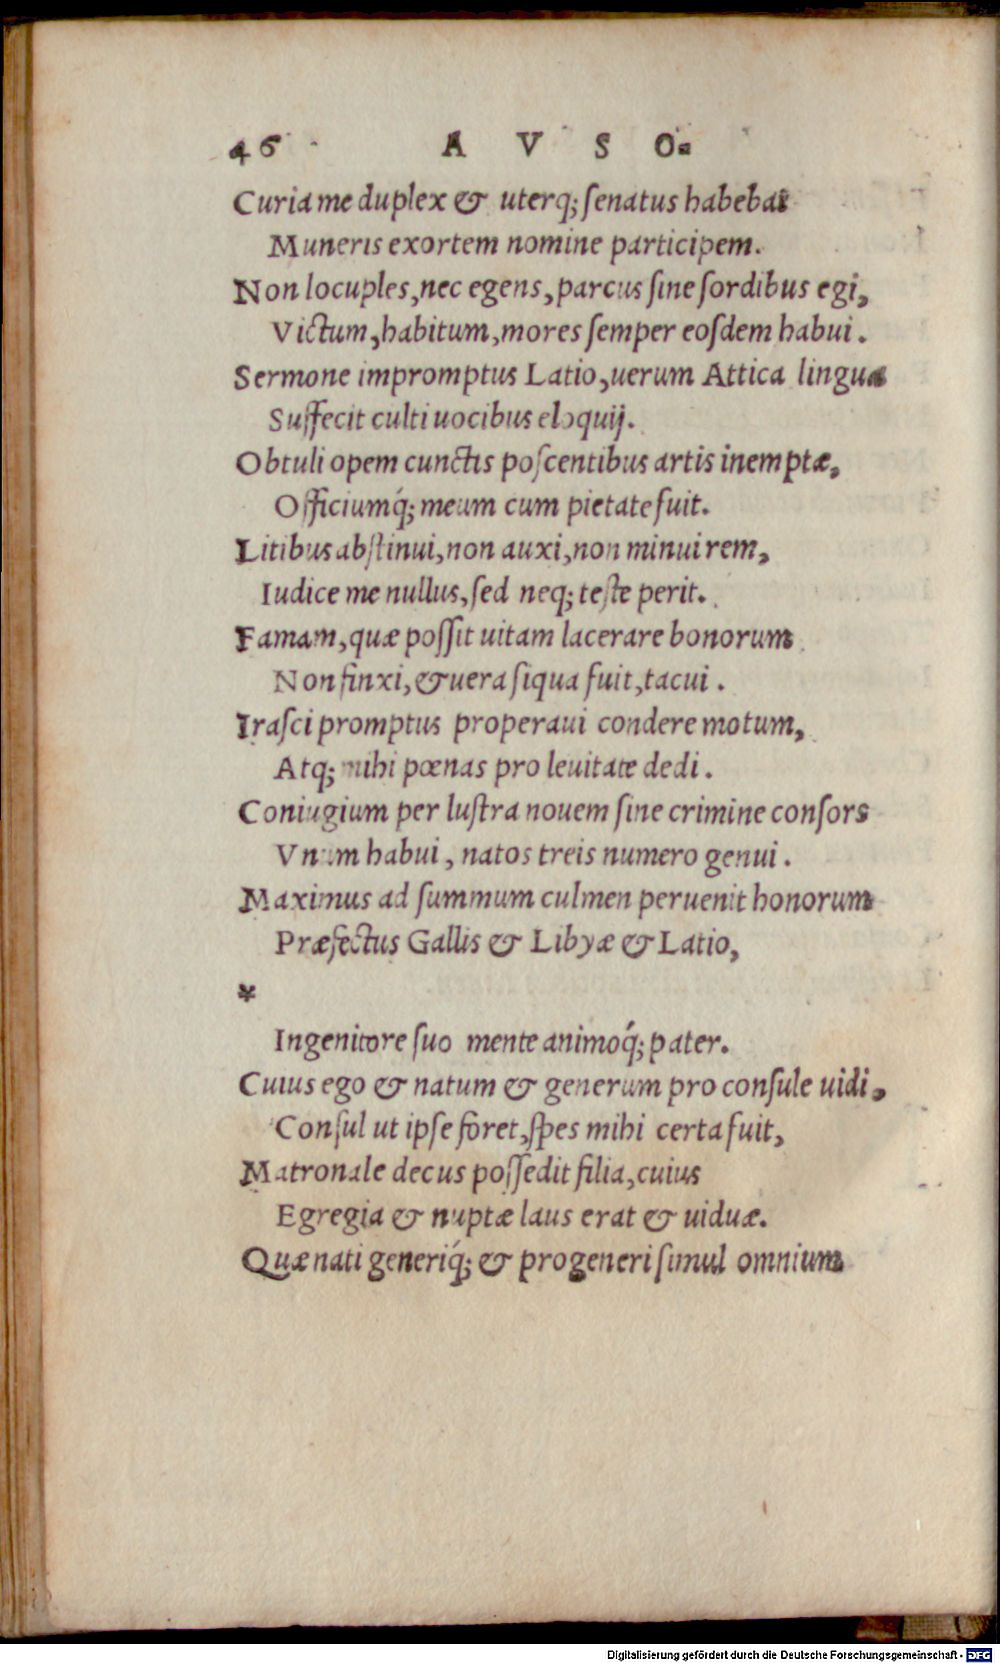 46 A V S O-
Curia me duplex & uterq; ſenatus habebat
Muneris exortem nomine participem.
Non locuples, nec egens, parcus ſine ſordibus egi,
Victum, habitum, mores ſemper eoſdem habui.
Sermone impromptus Latio, uerum Attica lingua
Suffecit culti uocibus eloquij.
Obtuli opem cunctis poſcentibus artis inemptæ,
Officiumq́; meum cum pietate fuit.
Litibus abſtinui, non auxi, non minui rem,
Iudice me nullus, ſed neq; teſte perit.
Famam, quæ poſſit uitam lacerare bonorum
Non finxi, & uera ſiqua fuit, tacui.
Iraſci promptus properaui condere motum,
Atq; mihi pœnas pro leuitate dedi.
Coniugium per luſtra nouem ſine crimine conſors
Vnum habui, natos treis numero genui.
Maximus ad ſummum culmen peruenit honorum
Præfectus Gallis & Libyæ & Latio,
*
Ingenitore ſuo mente animoq́; pater.
Cuius ego & natum & generum pro conſule uidi,
Conſul ut ipſe foret, ſpes mihi certa fuit,
Matronale decus poſſedit filia, cuius
Egregia & nuptæ laus erat & uiduæ.
Quæ nati generiq́; & progeneri ſimul omnium
Digitalisierung gefördert durch die Deutsche Forschungsgemeinschaft - DFG